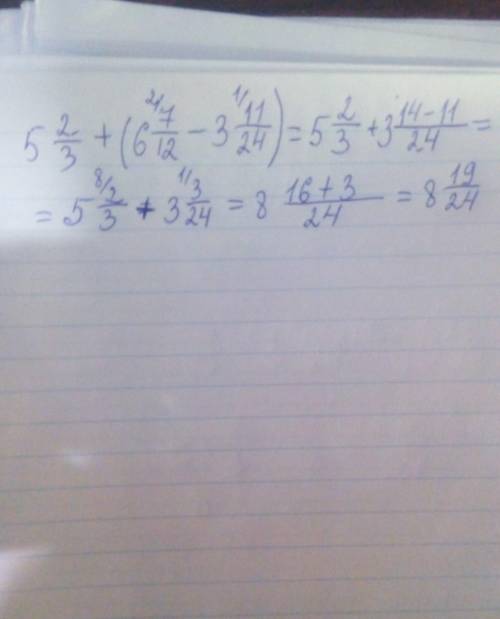 5 2/3 + (6 ²⁄7/12 − 3 ¹⁄11/24) = 5 2/3 + 3 14−11/24 =
= 5 ⁸⁄2/3 + 3 ¹⁄3/24 = 8 16+3/24 = 8 19/24